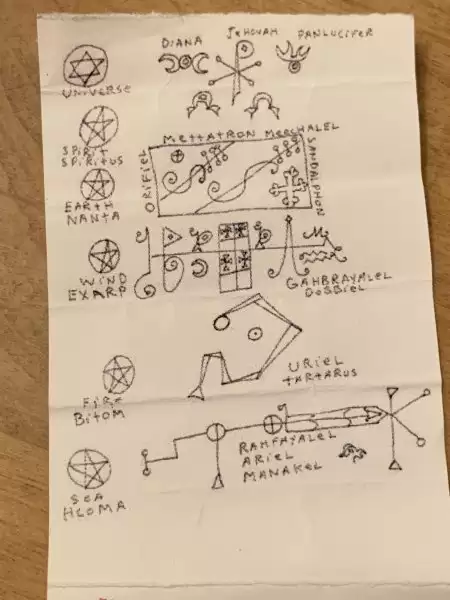 DIANA
JEHOVAH
PANLUCIFER
UNIVERSE
SPIRIT
SPIRITUS
METTATRON MEECHALEL
ORIFIEL
SANDALPHON
EARTH
NANTA
WIND
EXARP
GAHBRAYALEL
DOSSIEL
FIRE
BITOM
URIEL
TARTARUS
RAHFAYALEL
ARIEL
MANAKEL
SEA
HCOMA